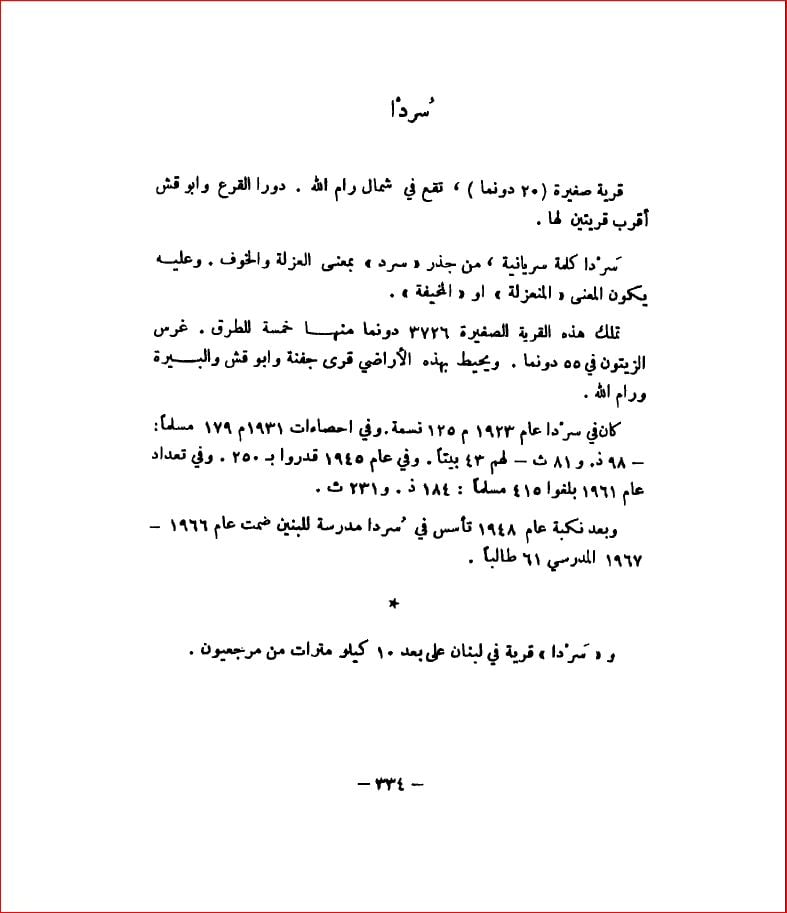 سُردْا
قرية صغيرة (٢٠ دونما) ، تقع في شمال رام الله . دورا القرع وابو قش
أقرب قريتين لها .
سَرْدا كلمة سريانية ، من جذر « سرد » بمعنى العزلة والخوف . وعليه
يكون المعنى « المنعزلة » او « المخيفة » .
تملك هذه القرية الصغيرة ٣٧٢٦ دونما منها خمسة للطرق . غرس
الزيتون في ٥٥ دونما . ويحيط بهذه الأراضي قرى جفنة وابو قش والبيرة
ورام الله .
كان في سرْدا عام ١٩٢٣ م ١٢٥ نسمة . وفي احصاءات ١٩٣١م ١٧٩ مسلماً :
– ٩٨ ذ. و ٨١ ث – لهم ٤٣ بيتاً . وفي عام ١٩٤٥ قدروا بـ ٢٥٠ . وفي تعداد
عام ١٩٦١ بلغوا ٤١٥ مسلماً : ١٨٤ ذ . و ٢٣١ ث .
وبعد نكبة عام ١٩٤٨ تأسس في سُردا مدرسة للبنين ضمت عام ١٩٦٦ –
١٩٦٧ المدرسي ٦١ طالباً .
*
و « سَرْدا » قرية في لبنان على بعد ١٠ كيلو مترات من مرجعيون .
– ٣٣٤ –